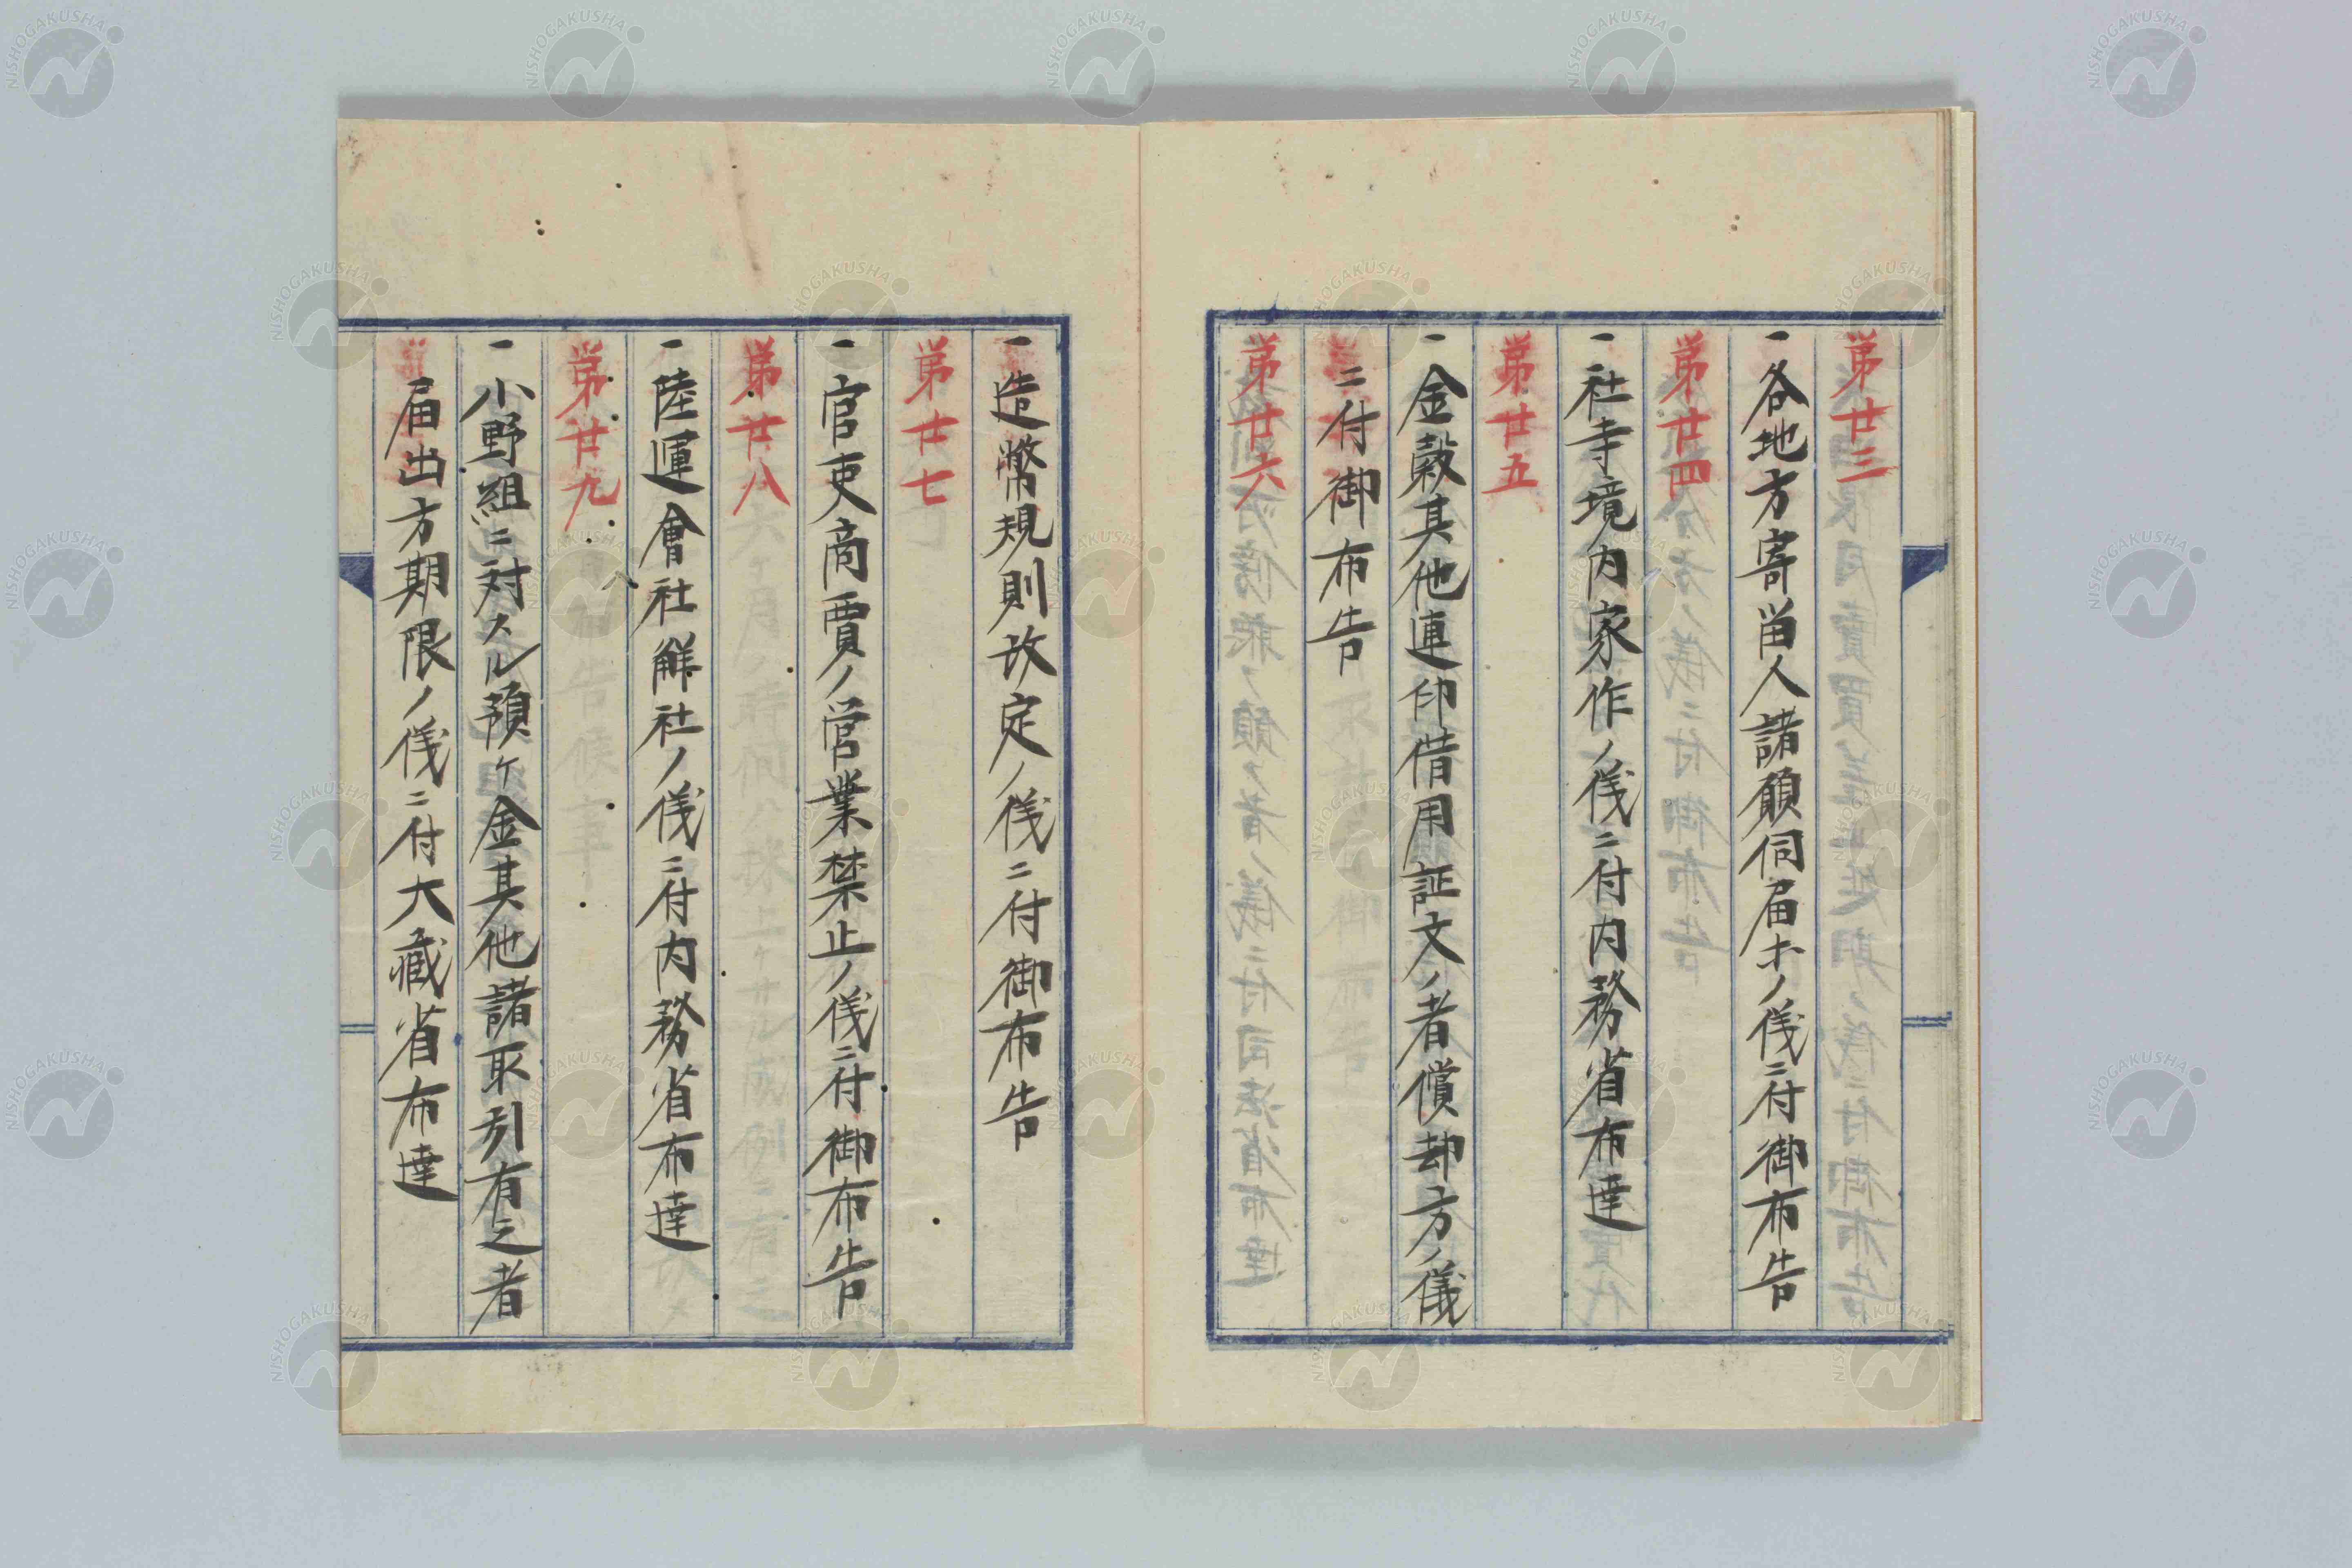 第廿三
一各地方寄留人諸願伺届ホノ儀ニ付御布告
第廿四
一社寺境内家作ノ儀ニ付内務省布達
第廿五
一金穀其他連印借用証文ノ者償却方ノ儀
ニ付御布告
第廿六
一造幣規則改定ノ儀ニ付御布告
第廿七
一官吏商賈ノ営業禁止ノ儀ニ付御布告
第廿八
一陸運會社解社ノ儀ニ付内務省布達
第廿九
一小野組ニ対スル預ケ金其他諸取引有之者
届出方期限ノ儀ニ付大蔵省布達
NISHOGAKUSHA